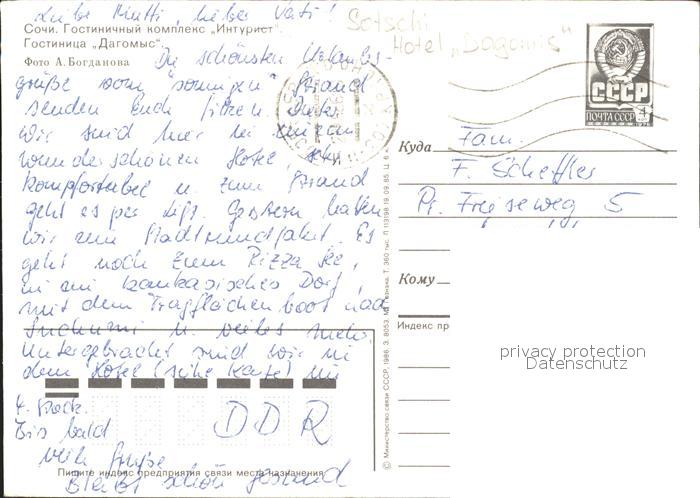 Liebe Mutti, lieber Vati!
Сочи. Гостиничный комплекс „Интурист".
Гостиница „Дагомыс".
Фото А.Богданова
Die schönsten Urlaubs-
grüße vom "sonnigen" Strand
senden Euch
Wir sind hier in einem
wunderschönen Hotel, sehr
komfortabel u. zum Strand
geht es per Lift. Gestern hatten
wir eine Stadtrundfahrt. Es
geht noch zum Rizza See,
in ein kaukasisches Dorf,
mit dem Tragflächenboot nach
Suchumi u. vieles mehr.
Untergebracht sind wir in
dem Hotel (siehe Karte) im
4. Stock.
Bis bald
viele Grüße
Bleibt schön gesund
Sotschi
Hotel „Dagomis"
СССР
ПОЧТА СССР
Куда
Fam.
F. Scheffler
Pr. Freiseweg 5
Кому
Индекс пр
privacy protection
Datenschutz
DDR
Пишите индекс предприятия связи места назначения
© Министерство связи СССР, 1986. З. 8053.